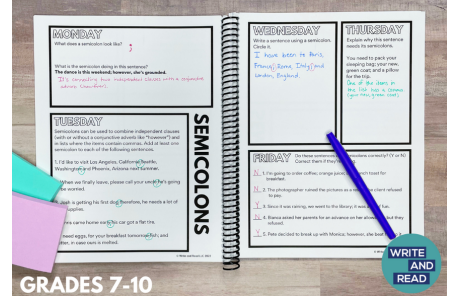 MONDAY
What does a semicolon look like?
;
What is the semicolon doing in this sentence?
The dance is this weekend; however, she's grounded.
It's connecting two independent clauses with a conjunctive
adverb (however).
TUESDAY
Semicolons can be used to combine independent clauses
(with or without a conjunctive adverb like "however") and
in lists where the items contain commas. Add at least one
semicolon to each of the following sentences.
1. I'd like to visit Los Angeles, California; Seattle,
Washington; Phoenix, Arizona next summer.
When we finally leave, please call your uncle; he's going
be worried.
is getting his first dog; therefore, he needs a lot of
supplies.
came home early; his car got a flat tire.
need eggs, for your breakfast tomorrow; fish; and
butter, in case ours is rivaled.
SEMICOLONS
WEDNESDAY
Write a sentence using a semicolon.
Circle it.
I have been to Paris,
France; Rome, Italy; and
London, England.
THURSDAY
Explain why this sentence
needs its semicolons.
You need to pack your
sleeping bag; your new,
green coat; and a pillow
for the trip.
One of the items in
the list has a comma
(your new, green coat).
FRIDAY
Do these sentences use semicolons correctly? (Y or N)
Correct them if they
N 1. I'm going to make coffee; orange juice; and French toast for
breakfast.
2. The photographer ruined the pictures as a result; the client refused
to pay.
3. Since it was raining, we went to the library; it was fun.
N 4. Bianca asked her parents for an advance on her allowance; but they
refused.
Y 5. Pete decided to break up with Monica; however, she beat
WRITE
AND
READ
GRADES 7-10